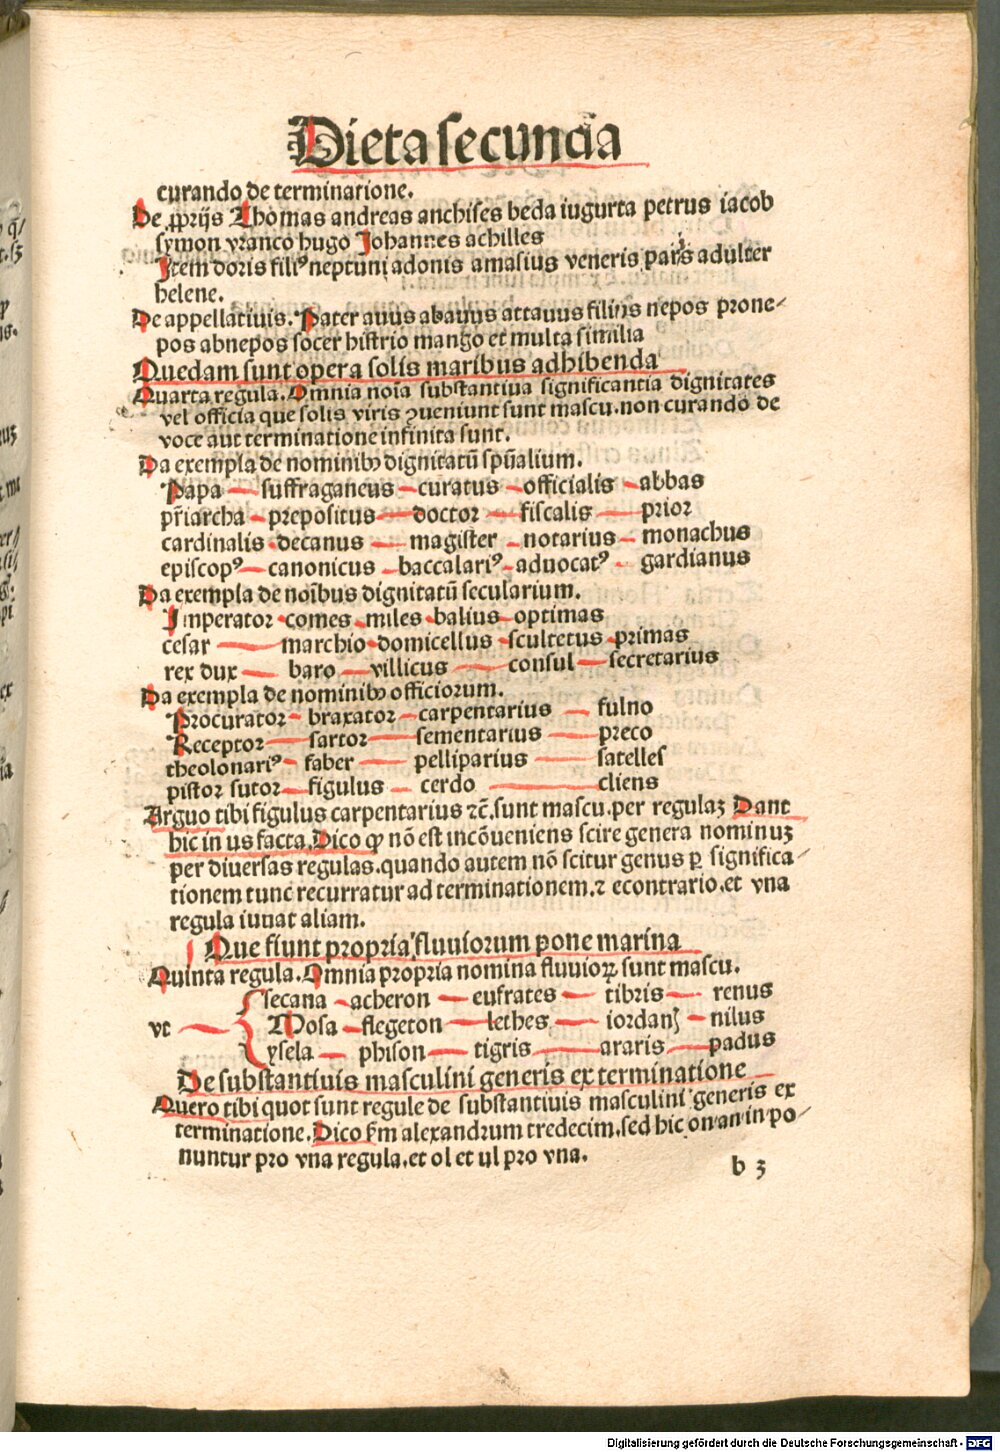 Dieta secunda
curando de terminatione.
De ꝓprijs Thomas andreas anchises beda iugurta petrus iacob
symon vranco hugo Johannes achilles
Item doris filiꝰ neptuni adonis amasius veneris paris adulter
helene.
De appellatiuis. Pater auus abauus attauus filius nepos prone-
pos abnepos socer histrio mango et multa similia
Quedam sunt opera solis maribus adhibenda
Quarta regula. Omnia noīa substantiua significantia dignitates
vel officia que solis viris ꝯueniunt sunt mascu. non curando de
voce aut terminatione infinita sunt.
Da exempla de nominibꝰ dignitatū spūalium.
Papa suffraganeus curatus officialis abbas
pr̄iarcha prepositus doctor fiscalis prior
cardinalis decanus magister notarius monachus
episcopꝰ canonicus baccalariꝰ aduocatꝰ gardianus
Da exempla de noībus dignitatū secularium.
Imperator comes miles balius optimas
cesar marchio domicellus scultetus primas
rex dux baro villicus consul secretarius
Da exempla de nominibꝰ officiorum.
Procurator braxator carpentarius fulno
Receptor sartor sementarius preco
theolonariꝰ faber pelliparius satelles
pistor sutor figulus cerdo cliens
Arguo tibi figulus carpentarius ⁊c̄. sunt mascu. per regulaꝫ Dant
hic in us facta. Dico ꝙ nō est incōueniens scire genera nominuꝫ
per diuersas regulas. quando autem nō scitur genus ꝑ significa-
tionem tunc recurratur ad terminationem. ⁊ econtrario. et vna
regula iuuat aliam.
Que fiunt propria fluuiorum pone marina
Quinta regula. Omnia propria nomina fluuioꝝ sunt mascu.
secana acheron eufrates tibris renus
vt Mosa flegeton lethes iordanis nilus
ysela phison tigris araris padus
De substantiuis masculini generis ex terminatione
Quero tibi quot sunt regule de substantiuis masculini generis ex
terminatione. Dico ẜm alexandrum tredecim. sed hic on an in po-
nuntur pro vna regula. et ol et ul pro vna.
b 3
Digitalisierung gefördert durch die Deutsche Forschungsgemeinschaft - DFG